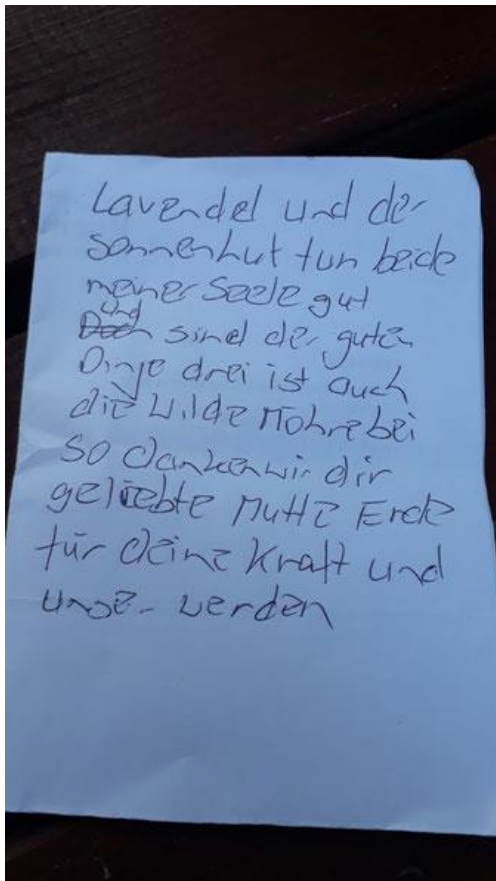 Lavendel und der
Sonnenhut tun beide
meiner Seele gut
und
Doch sind der guten
Dinge drei ist auch
die wilde Möhre bei
so danken wir dir
geliebte Mutte Erde
für deine Kraft und
unser werden